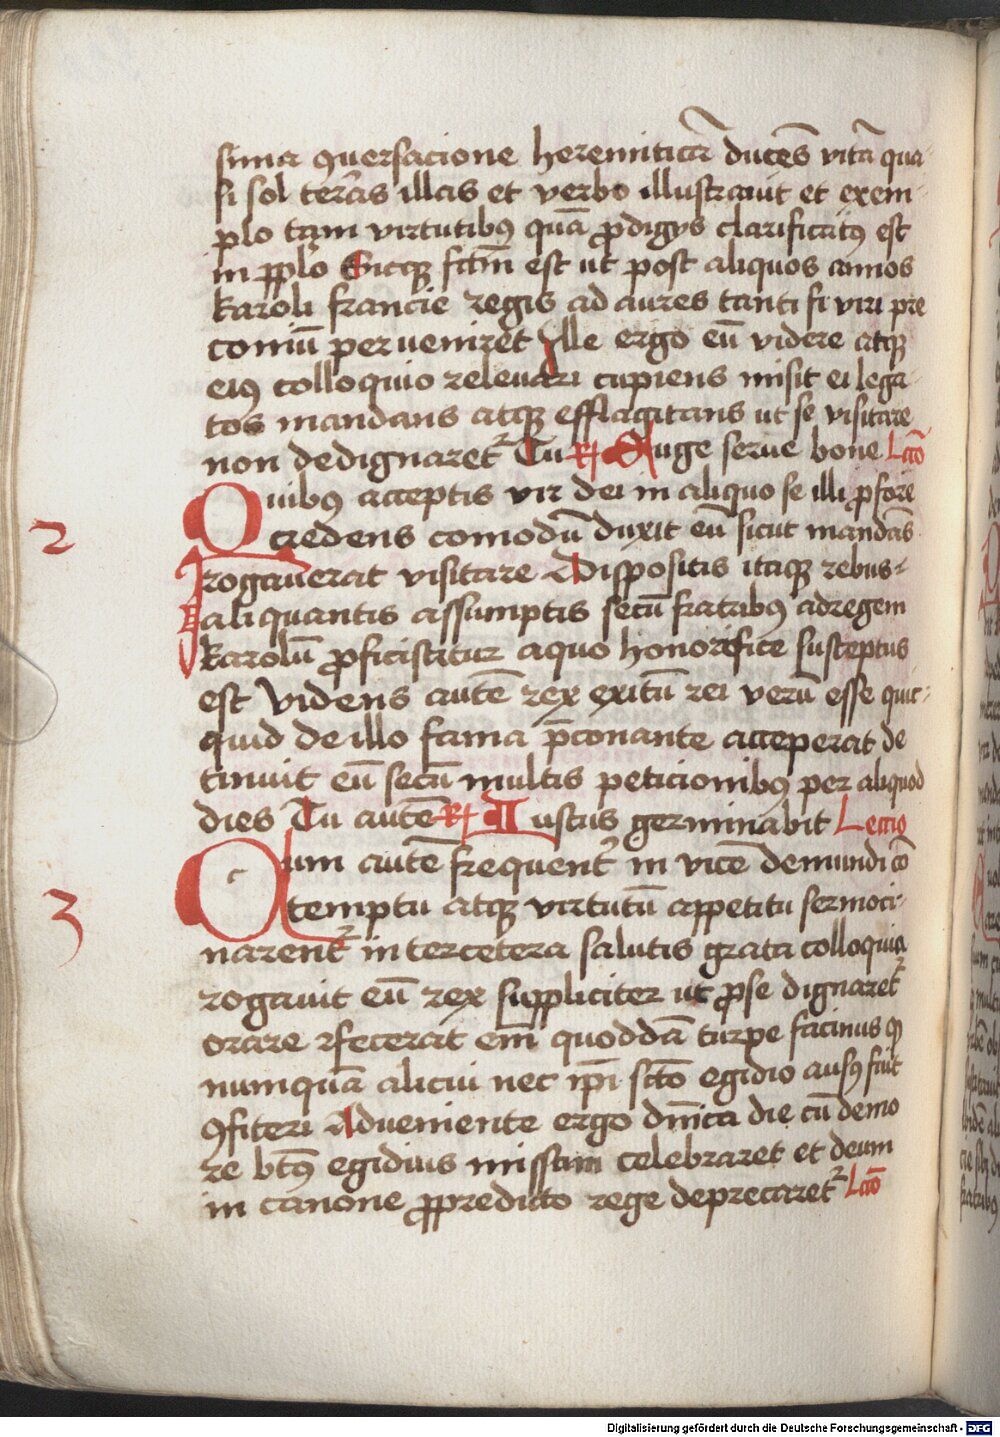 sima ꝯuersacione heremiticā ducēs vitā qua-
si sol terr̄as illas et verbo illustrauit et exem-
plo tam virtutibꝫ quā ꝓdigÿs clarificatꝰ est
in pp̄lo Sicqꝫ fc̄m est ut post aliquos annos
karoli francie regis ad aures tanti si viri pre
coniū per ueniret Ille ergo eū videre atqꝫ
eiꝰ colloquio releuari cupiens misit ei lega-
tos mandans atqꝫ efflagitans ut se visitare
non dedignaret᷑ Tu R̷ Euge serue bone Lc̄o
2
Quibꝫ acceptis vir dei in aliquo se illi ꝓfore
credens comodū duxit eū sicut mandās
rogauerat visitare Dispositis itaqꝫ rebus
aliquantis assumptis secū fratribꝫ adregem
karolū ꝓficiscitur aquo honorifice susceptus
est Videns autē rex exitū rei verū esse quic-
quid de illo fama p̄conante acceperat de
tinuit eū secū multis peticionibꝫ per aliquod
dies Tu autē R̷ Iustus germinabit Lectio
3
Cum autē frequent᷑ in vicē demundi cō
temptu atqꝫ virtutū appetitu sermoci-
narent᷑ intercetera salutis grata colloquia
rogauit eū rex suppliciter ut ꝓse dignaret᷑
orare ꝛfecerat em̄ quoddā turpe facinus qꝫ
numquā alicui nec ip̄i sc̄to egidio ausꝰ fuit
ꝯfiteri Adueniente ergo dn̄ica die cū demo
re bt̄ꝰ egidius missam celebraret et deum
in canone ꝓpredicto rege deprecaret᷑ Lc̄o
Digitalisierung gefördert durch die Deutsche Forschungsgemeinschaft - DFG